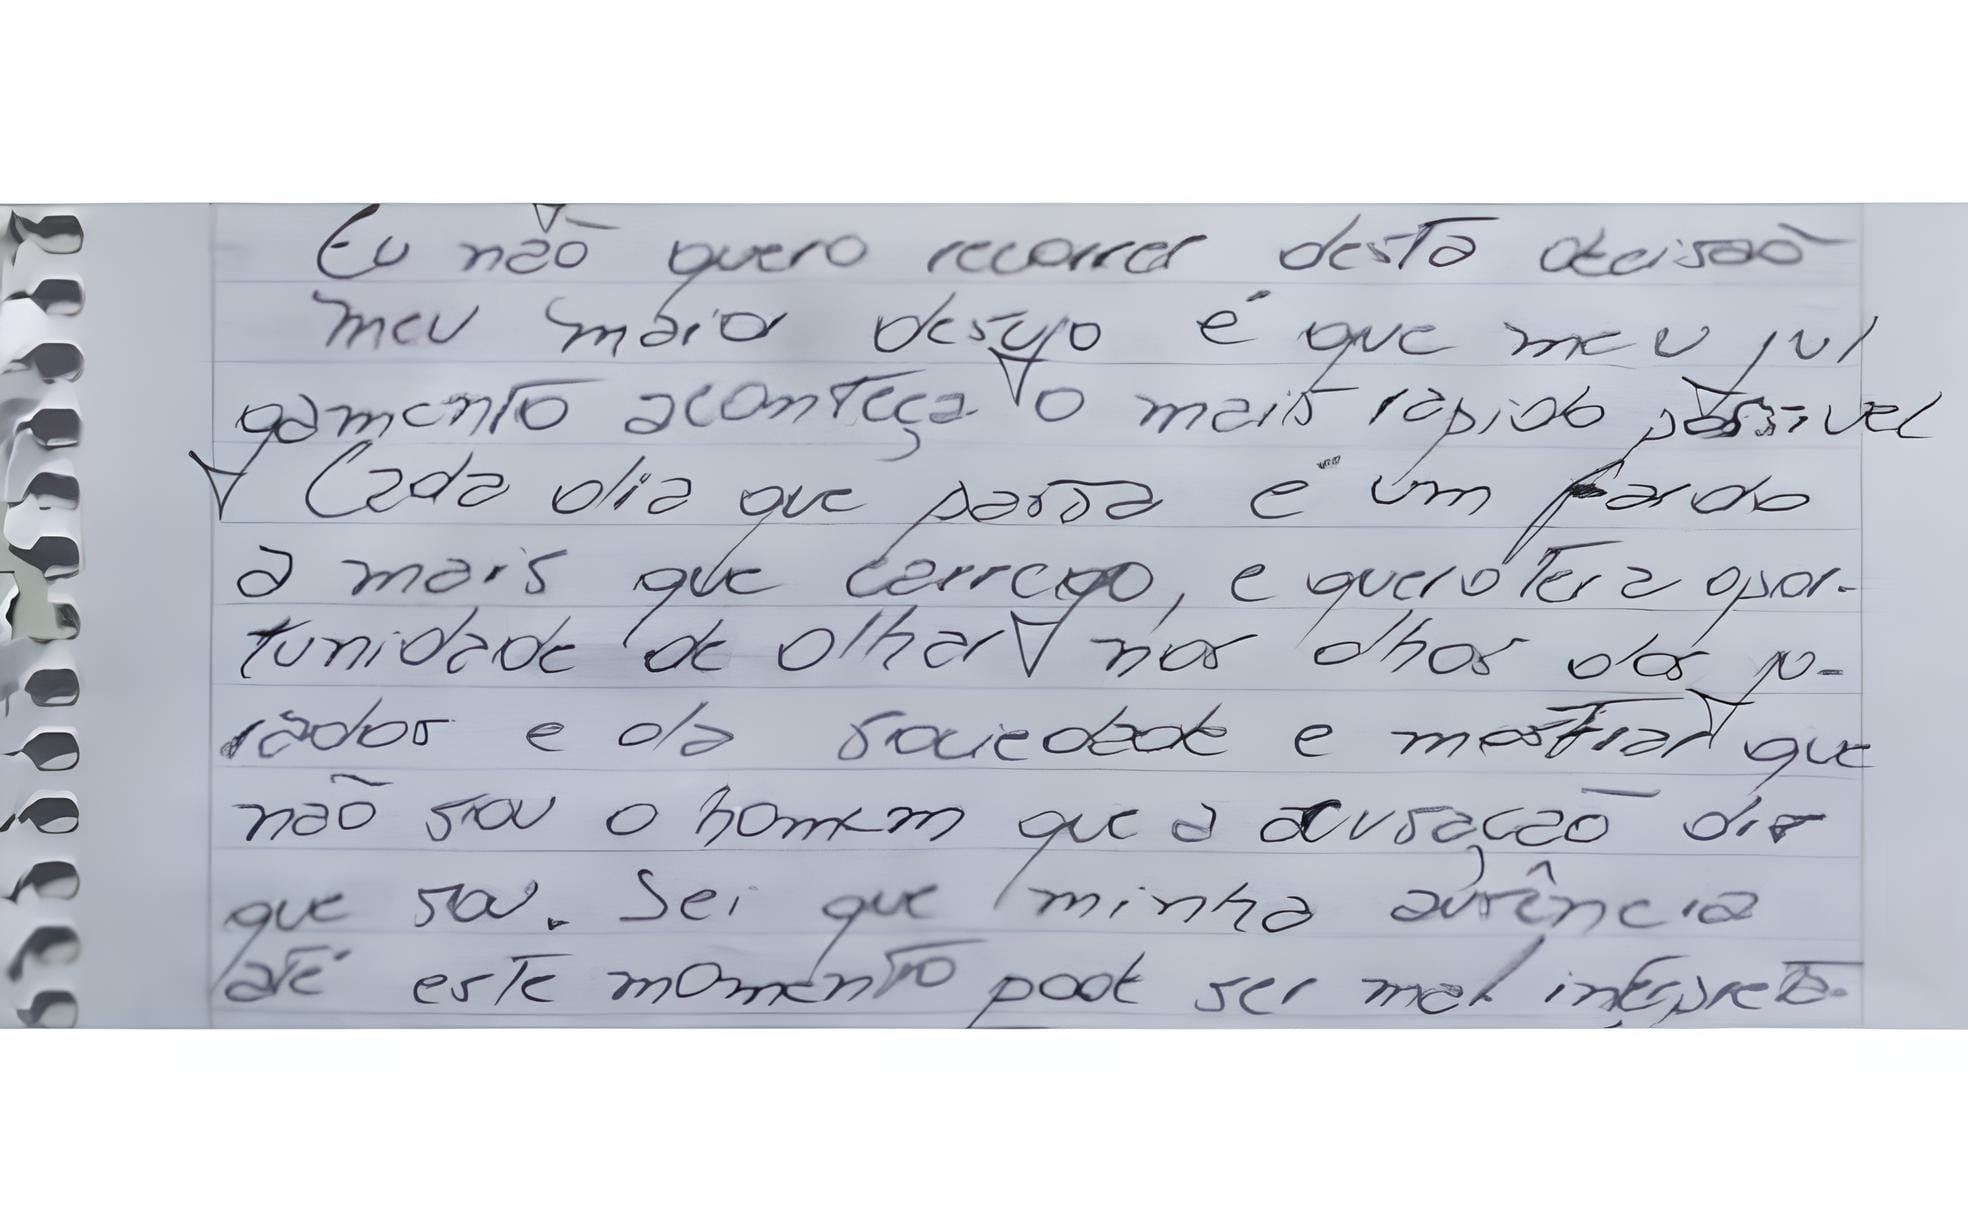 Eu não quero recorrer desta decisão
meu maior desejo é que meu jul
gamento aconteça o mais rapido possivel
Cada dia que passa é um fardo
a mais que carrego, e quero ter a opor-
tunidade de olhar nos olhos dos ju-
rados e da sociedade e mostrar que
não sou o homem que a acusação diz
que sou. Sei que minha ausência
até este momento pode ser mal interpreta-